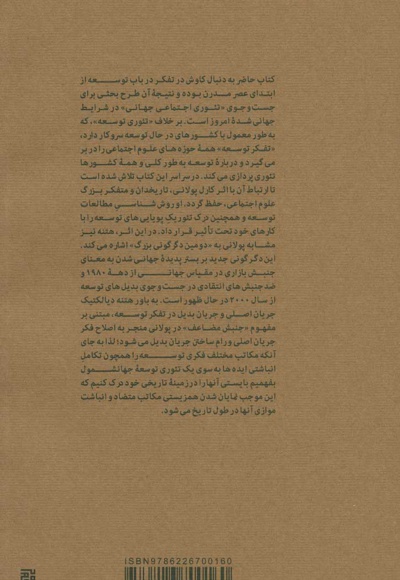 کتاب حاضر به دنبال کاوش در تفکر در باب توسعه از
ابتدای عصر مدرن بوده و نتیجهٔ آن طرح بحثی برای
جست‌وجوی «تئوری اجتماعی جهانی» در شرایط
جهانی شدهٔ امروز است. بر خلاف «تئوری توسعه»، که
به طور معمول با کشورهای در حال توسعه سروکار دارد،
«تفکر توسعه» همهٔ حوزه های علوم اجتماعی را در بر
می گیرد و دربارهٔ توسعه به طور کلی و همهٔ کشورها
تئوری پردازی می کند. در سراسر این کتاب تلاش شده است
تا ارتباط آن با اثر کارل پولانی، تاریخدان و متفکر بزرگ
علوم اجتماعی، حفظ گردد. او روش شناسی مطالعات
توسعه و همچنین درک تئوریک پویایی های توسعه را با
کارهای خود تحت تأثیر قرار داد. در این اثر، هتنه نیز
مشابه پولانی به «دومین دگرگونی بزرگ» اشاره می کند.
این دگرگونی جدید بر بستر پدیدهٔ جهانی شدن به معنای
جنبش بازاری در مقیاس جهانی از دههٔ ۱۹۸۰ و
ضد جنبش های انتقادی در جست و جوی بدیل های توسعه
از سال ۲۰۰۰ در حال ظهور است. به باور هتنه دیالکتیک
جریان اصلی و جریان بدیل در تفکر توسعه، مبتنی بر
مفهوم «جنبش مضاعف» در پولانی منجر به اصلاح فکر
جریان اصلی و رام ساختن جریان بدیل می شود؛ لذا به جای
آنکه مکاتب مختلف فکری توسعه را همچون تکامل
انباشتی ایده ها به سوی یک تئوری توسعهٔ جهانشمول
بفهمیم بایستی آنها را در زمینهٔ تاریخی خود درک کنیم که
این موجب نمایان شدن همزیستی مکاتب متضاد و انباشت
موازی آنها در طول تاریخ می شود.
ISBN9786226700160